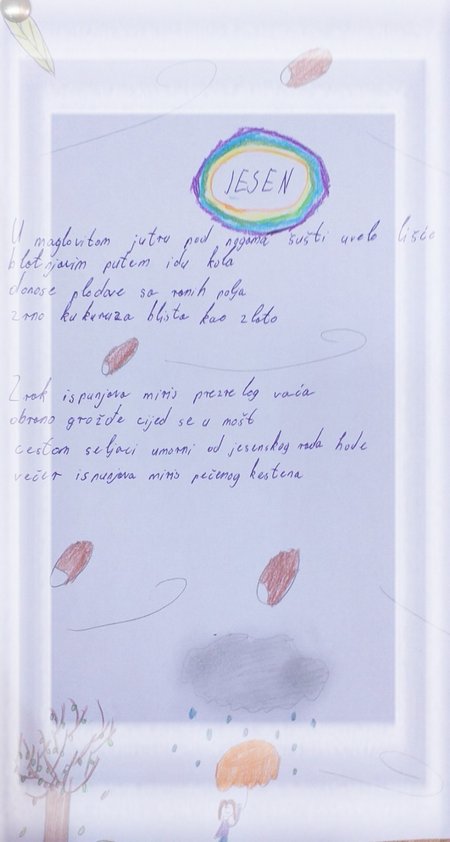 JESEN
U maglovitom jutru pod nogama šušti uvelo lišće
blatnjavim putem idu kola
donose plodove sa ranih polja
zrno kukuruza blista kao zlato
Zrak ispunjava miris prezrelog voća
obrano grožđe cijedi se u mošt
cestom seljaci umorni od jesenskog rada hode
večer ispunjava miris pečenog kestena